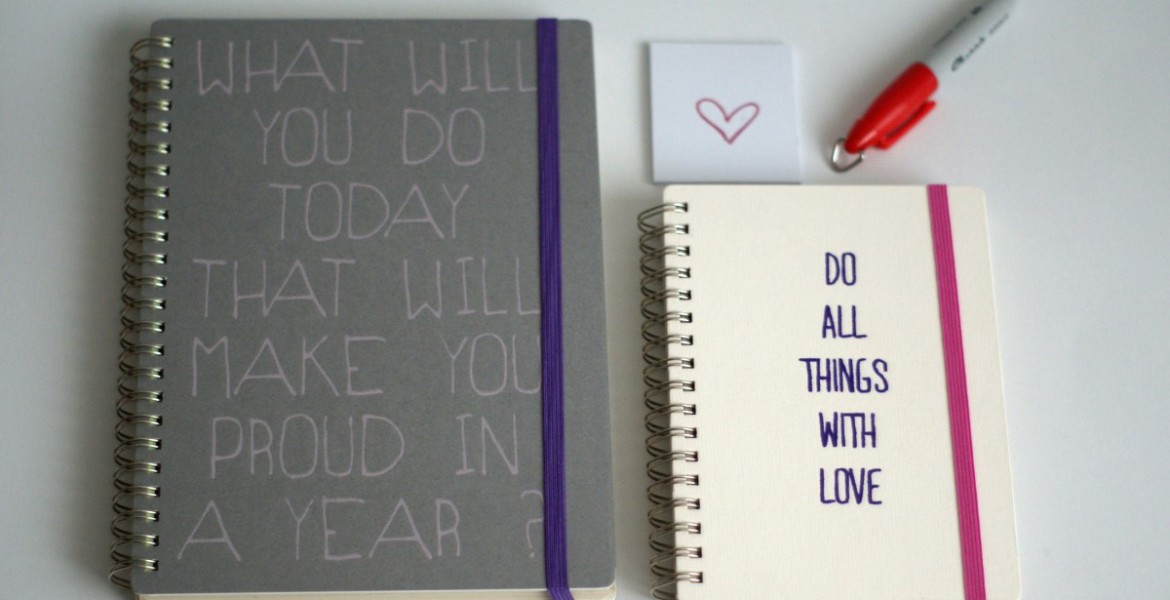 WHAT WILL
YOU DO
TODAY
THAT WILL
MAKE YOU
PROUD IN
A YEAR ?
DO
ALL
THINGS
WITH
LOVE